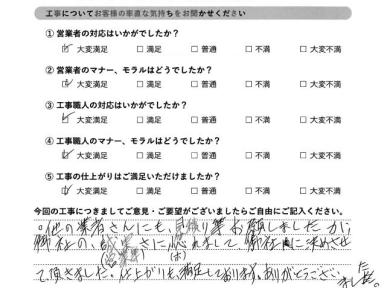 工事についてお客様の率直な気持ちをお聞かせください
① 営業者の対応はいかがでしたか？
☑ 大変満足 □ 満足 □ 普通 □ 不満 □ 大変不満
② 営業者のマナー、モラルはどうでしたか？
☑ 大変満足 □ 満足 □ 普通 □ 不満 □ 大変不満
③ 工事職人の対応はいかがでしたか？
☑ 大変満足 □ 満足 □ 普通 □ 不満 □ 大変不満
④ 工事職人のマナー、モラルはどうでしたか？
☑ 大変満足 □ 満足 □ 普通 □ 不満 □ 大変不満
⑤ 工事の仕上がりはご満足いただけましたか？
☑ 大変満足 □ 満足 □ 普通 □ 不満 □ 大変不満
今回の工事につきましてご意見・ご要望がございましたらご自由にご記入ください。
○他の業者さんにも、見積り等お願しましたが
御社の、誠実さに惚れまして、御社に決めさせ
(営業専) (ホ)
て頂きました。仕上がりも、満足しております。ありがとうござい
ました。